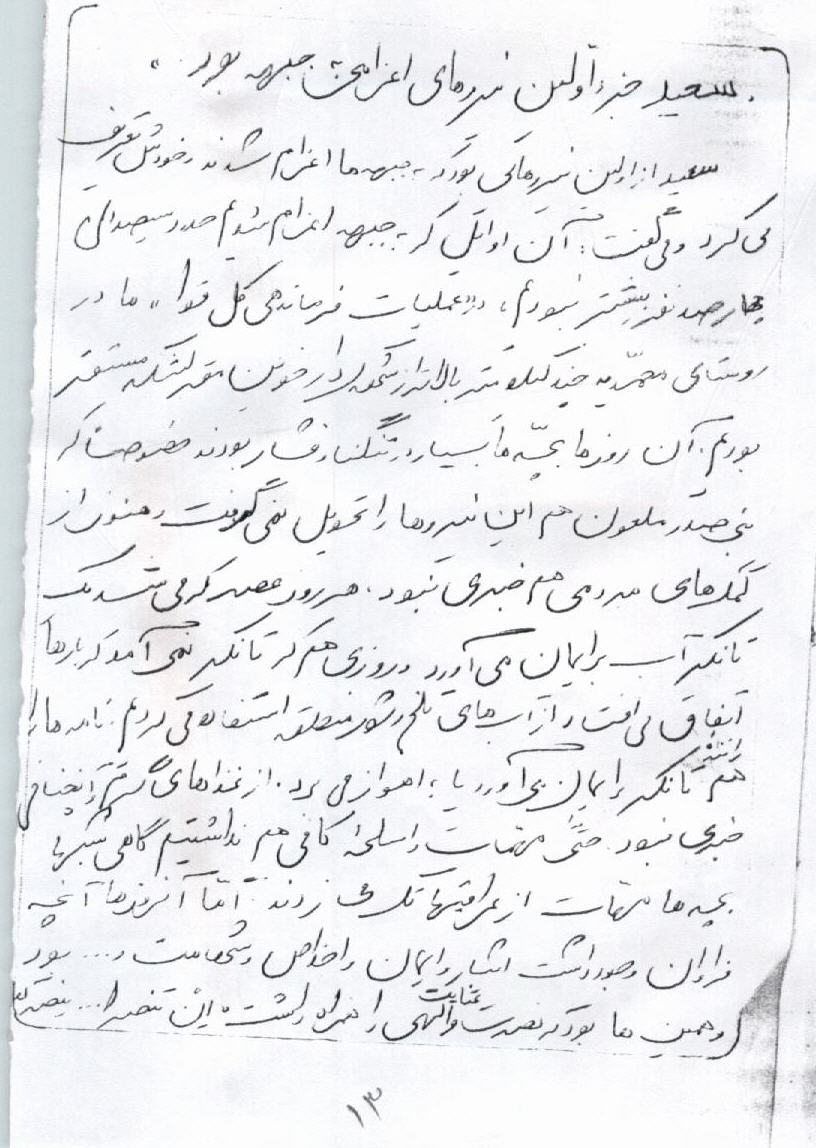 سعید جزء اولین نیروهای اعزامی به جبهه بود.
سعید از اولین نیروهایی بود که به جبهه ها اعزام شدند خودش تعریف
می کرد و می گفت: آن اوایل که به جبهه اعزام شدیم حدود سیصد الی
چهارصد نفر بیشتر نبودیم، در «عملیات فرماندهی کل قوا» ما در
روستای محمّدیه چند کیلومتر بالاتر از دارخوین مقر لشکر مستقر
بودیم. آن روزها بچّه ها بسیار در تنگنا و فشار بودند مخصوصاً که
بنی صدر ملعون هم این نیروها را تحویل نمی گرفت و هنوز از
کمکهای مردمی هم خبری نبود. هر روز عصر که می شد یک
تانکر آب برایمان می آورد و روزی هم که تانکر نمی آمد که بارها
اتفاق می افتاد از آب های تلخ و شور منطقه استفاده می کردیم. نامه ها را
راننده
هم تانکر برایمان می آورد یا به اهواز می برد. از غذاهای گرم و آنچنانی
خبری نبود. حتّی مهمّات و اسلحۀ کافی هم نداشتیم گاهی شبها
بچه ها مهمّات از عراقیها تک می زدند. امّا آنروزها آنچه
فراوان وجود داشت ایثار و ایمان و اخلاص و شهامت و... بود
و همین ها بود که نصرت و عنایت الهی را همراه داشت. اِنْ تنصروا ا... ینصرکم
۱۳